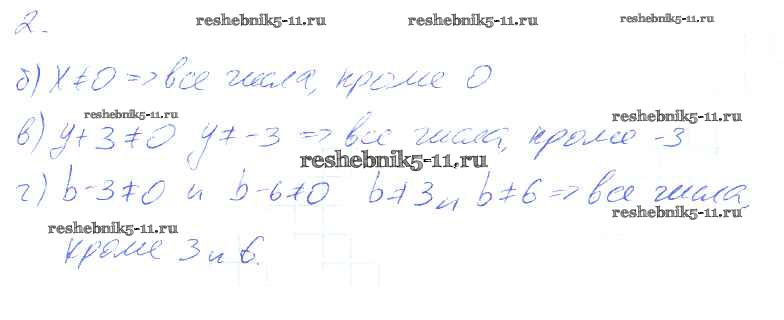 2.
reshebnik5-11.ru reshebnik5-11.ru reshebnik5-11.ru
б) x≠0 => все числа, кроме 0
reshebnik5-11.ru reshebnik5-11.ru
в) y+3≠0 y≠-3 => все числа, кроме -3
reshebnik5-11.ru
г) b-3≠0 и b-6≠0 b≠3 и b≠6 => все числа,
reshebnik5-11.ru reshebnik5-11.ru
кроме 3 и 6.